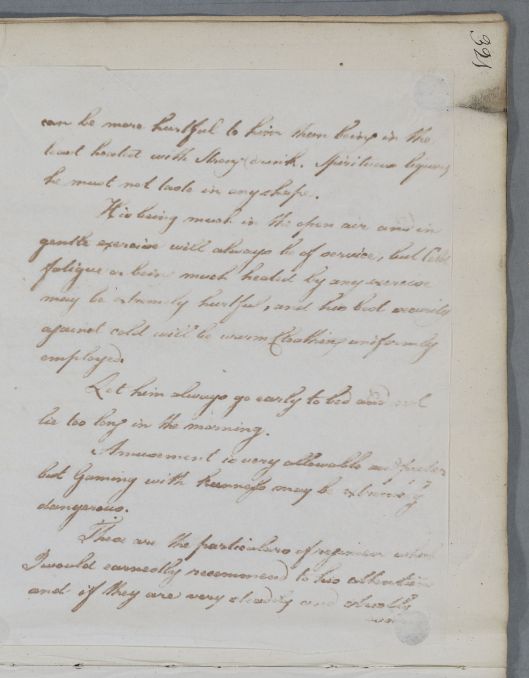 321
can be more hurtful to him than being in the
least heated with Strong drink. Spirituous liquors
he must not taste in any shape.
His being much in the open air and in
gentle exercise will always be of service, but Cold
fatigue or being much heated by any exercise
may be extremely hurtful, and his best security
against cold will be warm Cloathing uniformly
employed.
Let him always go early to bed and not
lie too long in the morning.
Amusement is very allowable and proper
but Gaming with keenness may be extremely
dangerous.
These are the particulars of regimen which
I would earnestly recommend to his attention
and if they are very steadily and strictly